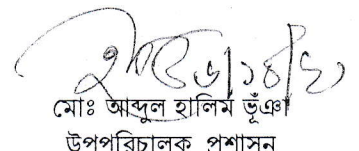 মোঃ আব্দুল হালিম ভূঁঞা
উপপরিচালক প্রশাসন